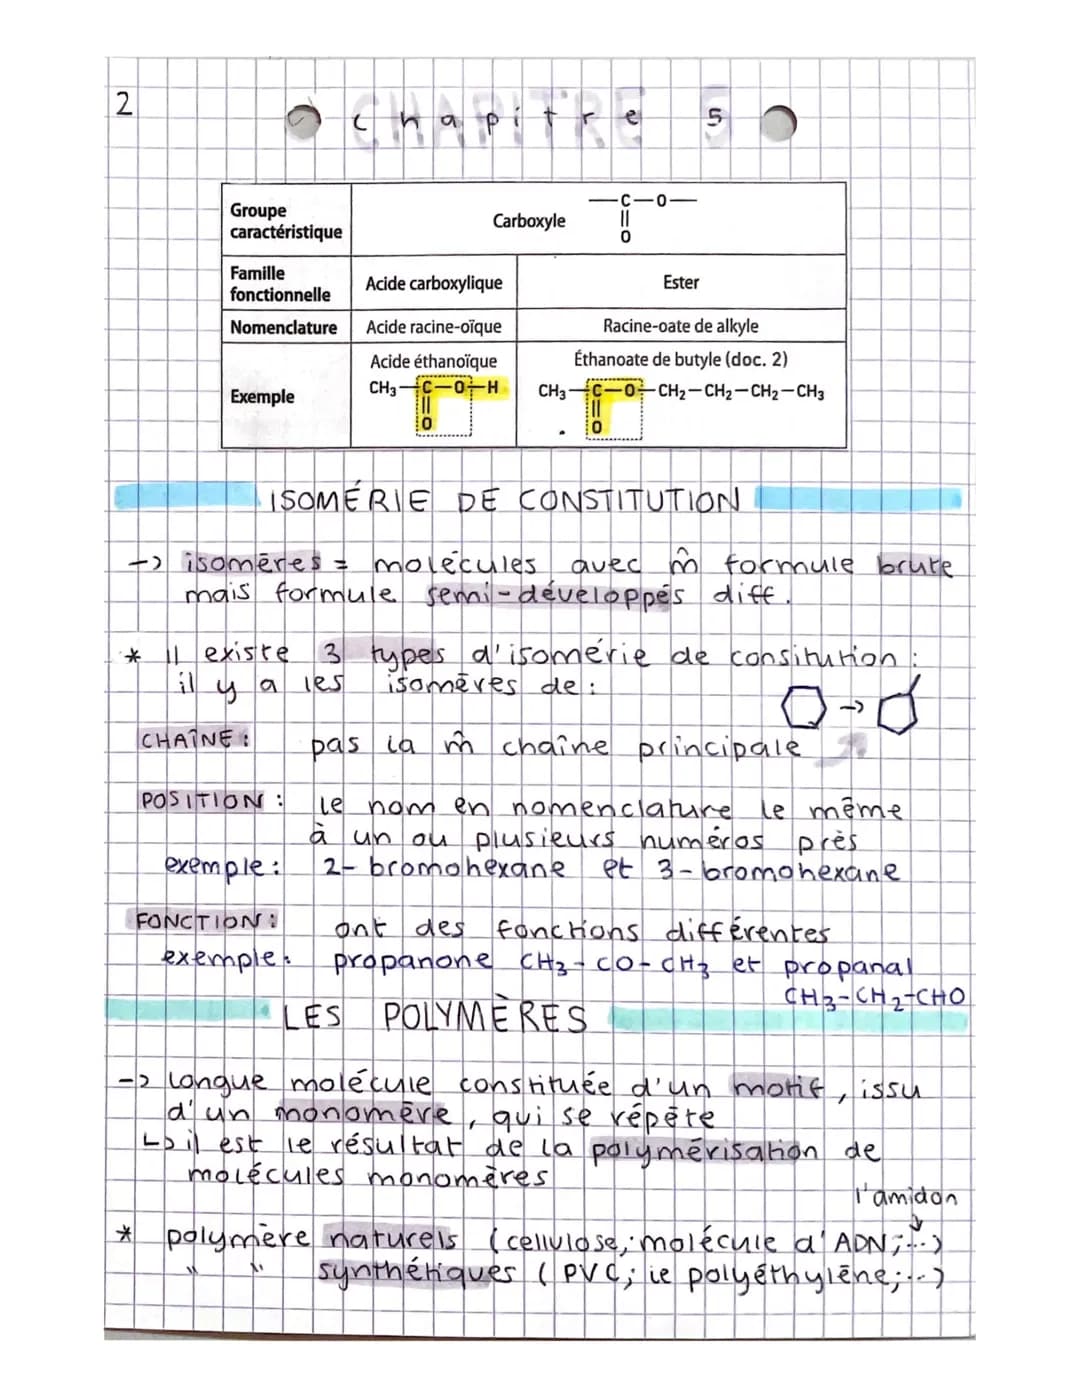 2
Chapitre 5
Groupe caractéristique
Carboxyle
—C—O—
||
O
Famille fonctionnelle
Acide carboxylique
Ester
Nomenclature
Acide racine-oïque
Racine-oate de alkyle
Exemple
Acide éthanoïque
CH3—C—O—H
||
O
Éthanoate de butyle (doc. 2)
CH3—C—O—CH2—CH2—CH2—CH3
||
O
ISOMÉRIE DE CONSTITUTION
-> isomères = molécules avec m̂ formule brute
mais formule semi-développés diff.
* Il existe 3 types d'isomérie de consitution :
il y a les isomères de :
->
CHAÎNE : pas la m̂ chaîne principale
POSITION : le nom en nomenclature le même
à un ou plusieurs numéros près
exemple : 2-bromohexane et 3-bromohexane
FONCTION : ont des fonctions différentes
exemple : propanone CH3-CO-CH3 et propanal
CH3-CH2-CHO
LES POLYMÈRES
-> longue molécule constituée d'un motif, issu
d'un monomère, qui se répète
↳ il est le résultat de la polymérisation de
molécules monomères
l'amidon
* polymère naturels (cellulose; molécule d'ADN;...)
" " synthétiques (PVC; le polyéthylène;...)